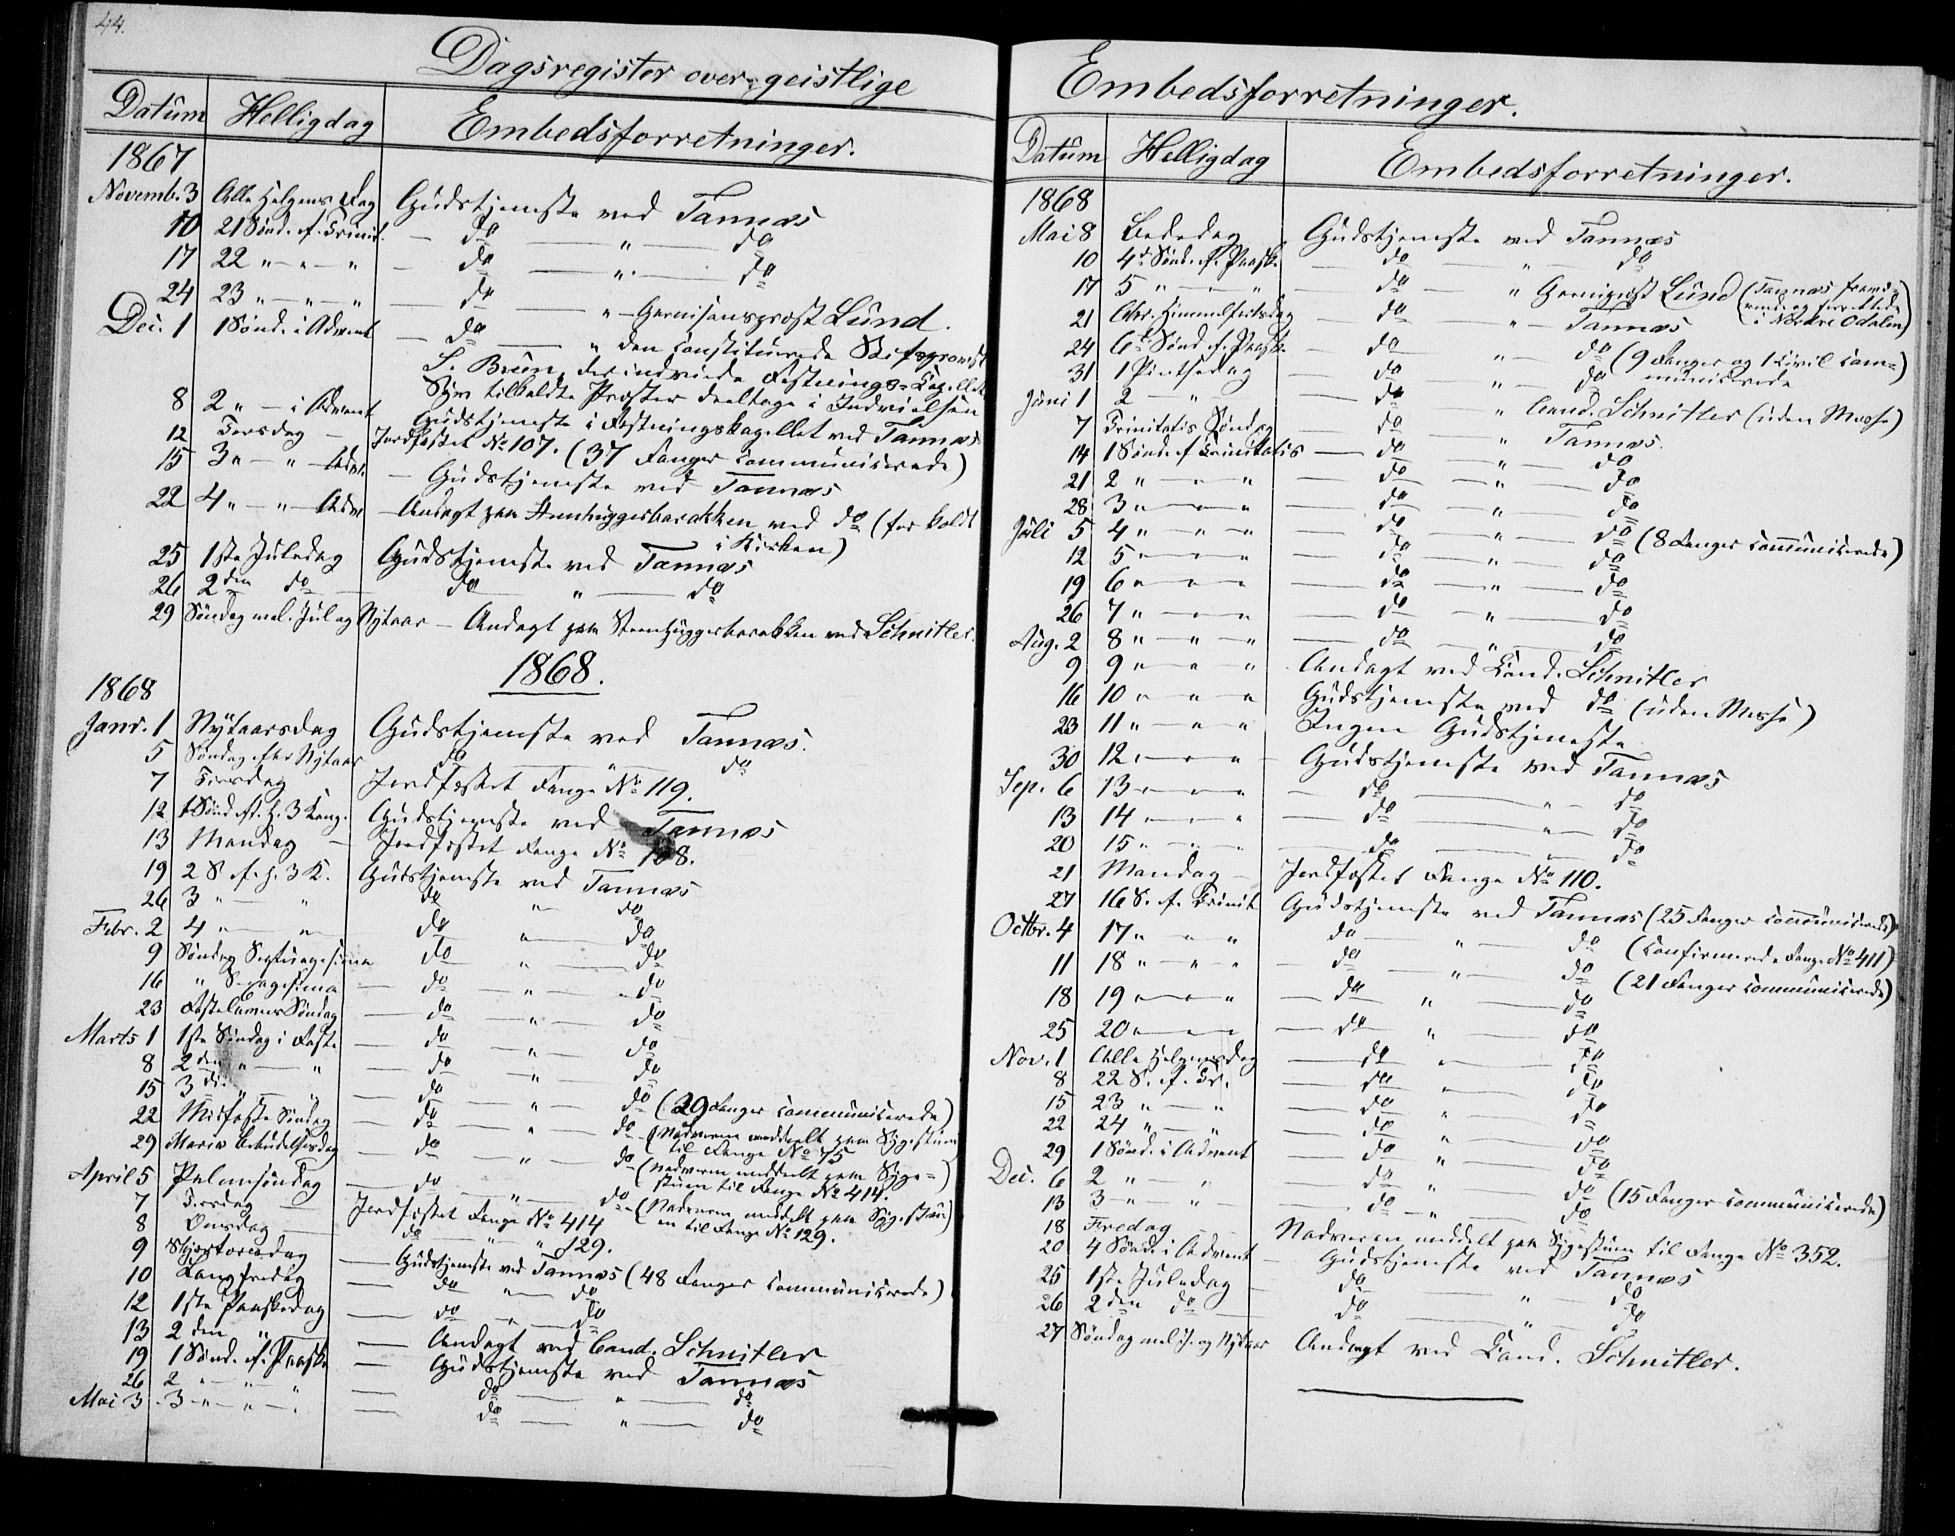 44.
Dagsregister over geistlige
Datum Helligdag Embedsforretninger.
1867
Novemb. 3 Alle Helgens Dag Gudstjeneste ved Tannæs
10 21 Sønd. ef. Trinit. — do — " — do
17 22 " — " — " — do — " — do
24 23 " — " — " — do — " — Garnisonspræst Lund.
Dec. 1 1 Sønd. i Advent — do — " den constituerede Stiftsprovst
S. Brun, der indviede Fæstnings-Capellet
Syv tilkaldte Præster deeltoge i Indvielsen
8 2 " — i Advent Gudstjeneste i Fæstningskapellet ved Tannæs
12 Torsdag — Jordfæstet No 107. (37 Fanger communicerede)
15 3 " — " — Adv. — Gudstjeneste ved Tannæs
22 4 " — " — Adv. — Andagt paa Steenhuggerbarakken ved do (for koldt
i Kirken)
25 1ste Juledag Gudstjeneste ved Tannæs
26 2den do — do — " — do
29 Søndag mel. Jul og Nytaar — Andagt paa Steenhuggerbarakken ved Schnitler.
1868.
1868
Janr. 1 Nytaarsdag Gudstjeneste ved Tannæs.
5 Søndag efter Nytaar do — " — do
7 Tirsdag Jordfæstet Fange No 119.
12 1 Sønd. eft. H. 3 Kong. Gudstjeneste ved Tannæs
13 Mandag — Jordfæstet Fange No 108.
19 2 S. ef. H. 3 K. Gudstjeneste ved Tannæs
26 3 " — " do — " — do
Febr. 2 4 " — " do — " — do
9 Søndag Septuagesima do — " — do
16 " Sexagesima — do — " — do
23 Fastelavns Søndag — do — " — do
Marts 1 1ste Søndag i Faste — do — " — do
8 2den " — " — do — " — do
15 3die " — " — do — " — do (29 Fanger communicerede)
22 Midfaste Søndag — do — " — do (Nadveren meddeelt paa Sygestuen
til Fange No 75
29 Mariæ Bebudelsesdag — do — " — do (Nadveren meddeelt paa Syge=)
stuen til Fange No 414.
April 5 Palmesøndag — do — " — do (Nadveren meddelt paa Sygestu)
en til Fange No 129.
7 Tirsdag — Jordfæstet Fange No 414
8 Onsdag — do — " " 129.
9 Skjærtorsdag — Gudstjeneste ved Tannæs (48 Fanger communicerede)
10 Langfredag — do " — do
12 1ste Paaskedag — do — " — do
13 2den " — Andagt ved Cand. Schnitler
19 1 Sønd. ef. Paaske — Gudstjeneste ved Tannæs
26 2 " — " — " — do — " — do
Mai 3 3 " — " — " — do — " — do
Embedsforretninger.
Datum Helligdag Embedsforretninger.
1868
Mai 8 Bededag Gudstjeneste ved Tannæs
10 4de Sønd. ef. Paask. — do — " — do
17 5 " — " — do — " Garnisonspræst Lund (Tannæs fravæ=
rende og forrettede
i Nordre Odalen)
21 Chr. Himmelfartsdag — do — " — Tannæs
24 6te Sønd. ef. Paask. — do — " — do (9 Fanger og 1 Civil com=)
municerede
31 1 Pintsedag — do — " — do
Juni 1 2 — " — do — " Cand. Schnitler (uden Messe)
7 Trinitatis Søndag — do — " Tannæs.
14 1 Sønd. ef Trinitatis — do — " — do
21 2 " — " — " — do — " — do
28 3 " — " — " — do — " — do
Juli 5 4 " — " — " — do — " — do (8 Fanger communicerede)
12 5 " — " — " — do — " — do
19 6 " — " — " — do — " — do
26 7 " — " — " — do — " — do
Aug. 2 8 " — " — " — do — " — do
9 9 " — " — " Andagt ved Cand. Schnitler
16 10 " — " — " Gudstjeneste ved do (uden Messe)
23 11 " — " — " Ingen Gudstjeneste
30 12 " — " — " — Gudstjeneste ved Tannæs
Sep. 6 13 " — " — " — do — " — do
13 14 " — " — " — do — " — do
20 15 " — " — " — do — " — do
21 Mandag — Jordfæstet Fange No 110.
27 16 S. ef. Trinit Gudstjeneste ved Tannæs (25 Fanger communicerede)
Octbr. 4 17 " — " — " do — " — do (Confirmerede Fange No 411)
11 18 " — " — " — do — " — do (21 Fanger communicerede)
18 19 " — " — " — do " — do
25 20 " — " — " — do " — do
Nov. 1 Alle Helgensdag — do " — do
8 22 S. ef. Tr. — do " — do
15 23 " — " — do " — do
22 24 " — " — do " — do
29 1 Sønd. i Advent — do " — do
Dec. 6 2 " — " — do — " — do
13 3 " — " — do — " — do (15 Fanger communicerede)
18 Fredag — Nadveren meddelt paa Sygestuen til Fange No 352.
20 4 Sønd. i Advent — Gudstjeneste ved Tannæs
25 1ste Juledag — do — " — do
26 2den do — do — " — do
27 Søndag mel. J. og Nytaar Andagt ved Cand. Schnitler.